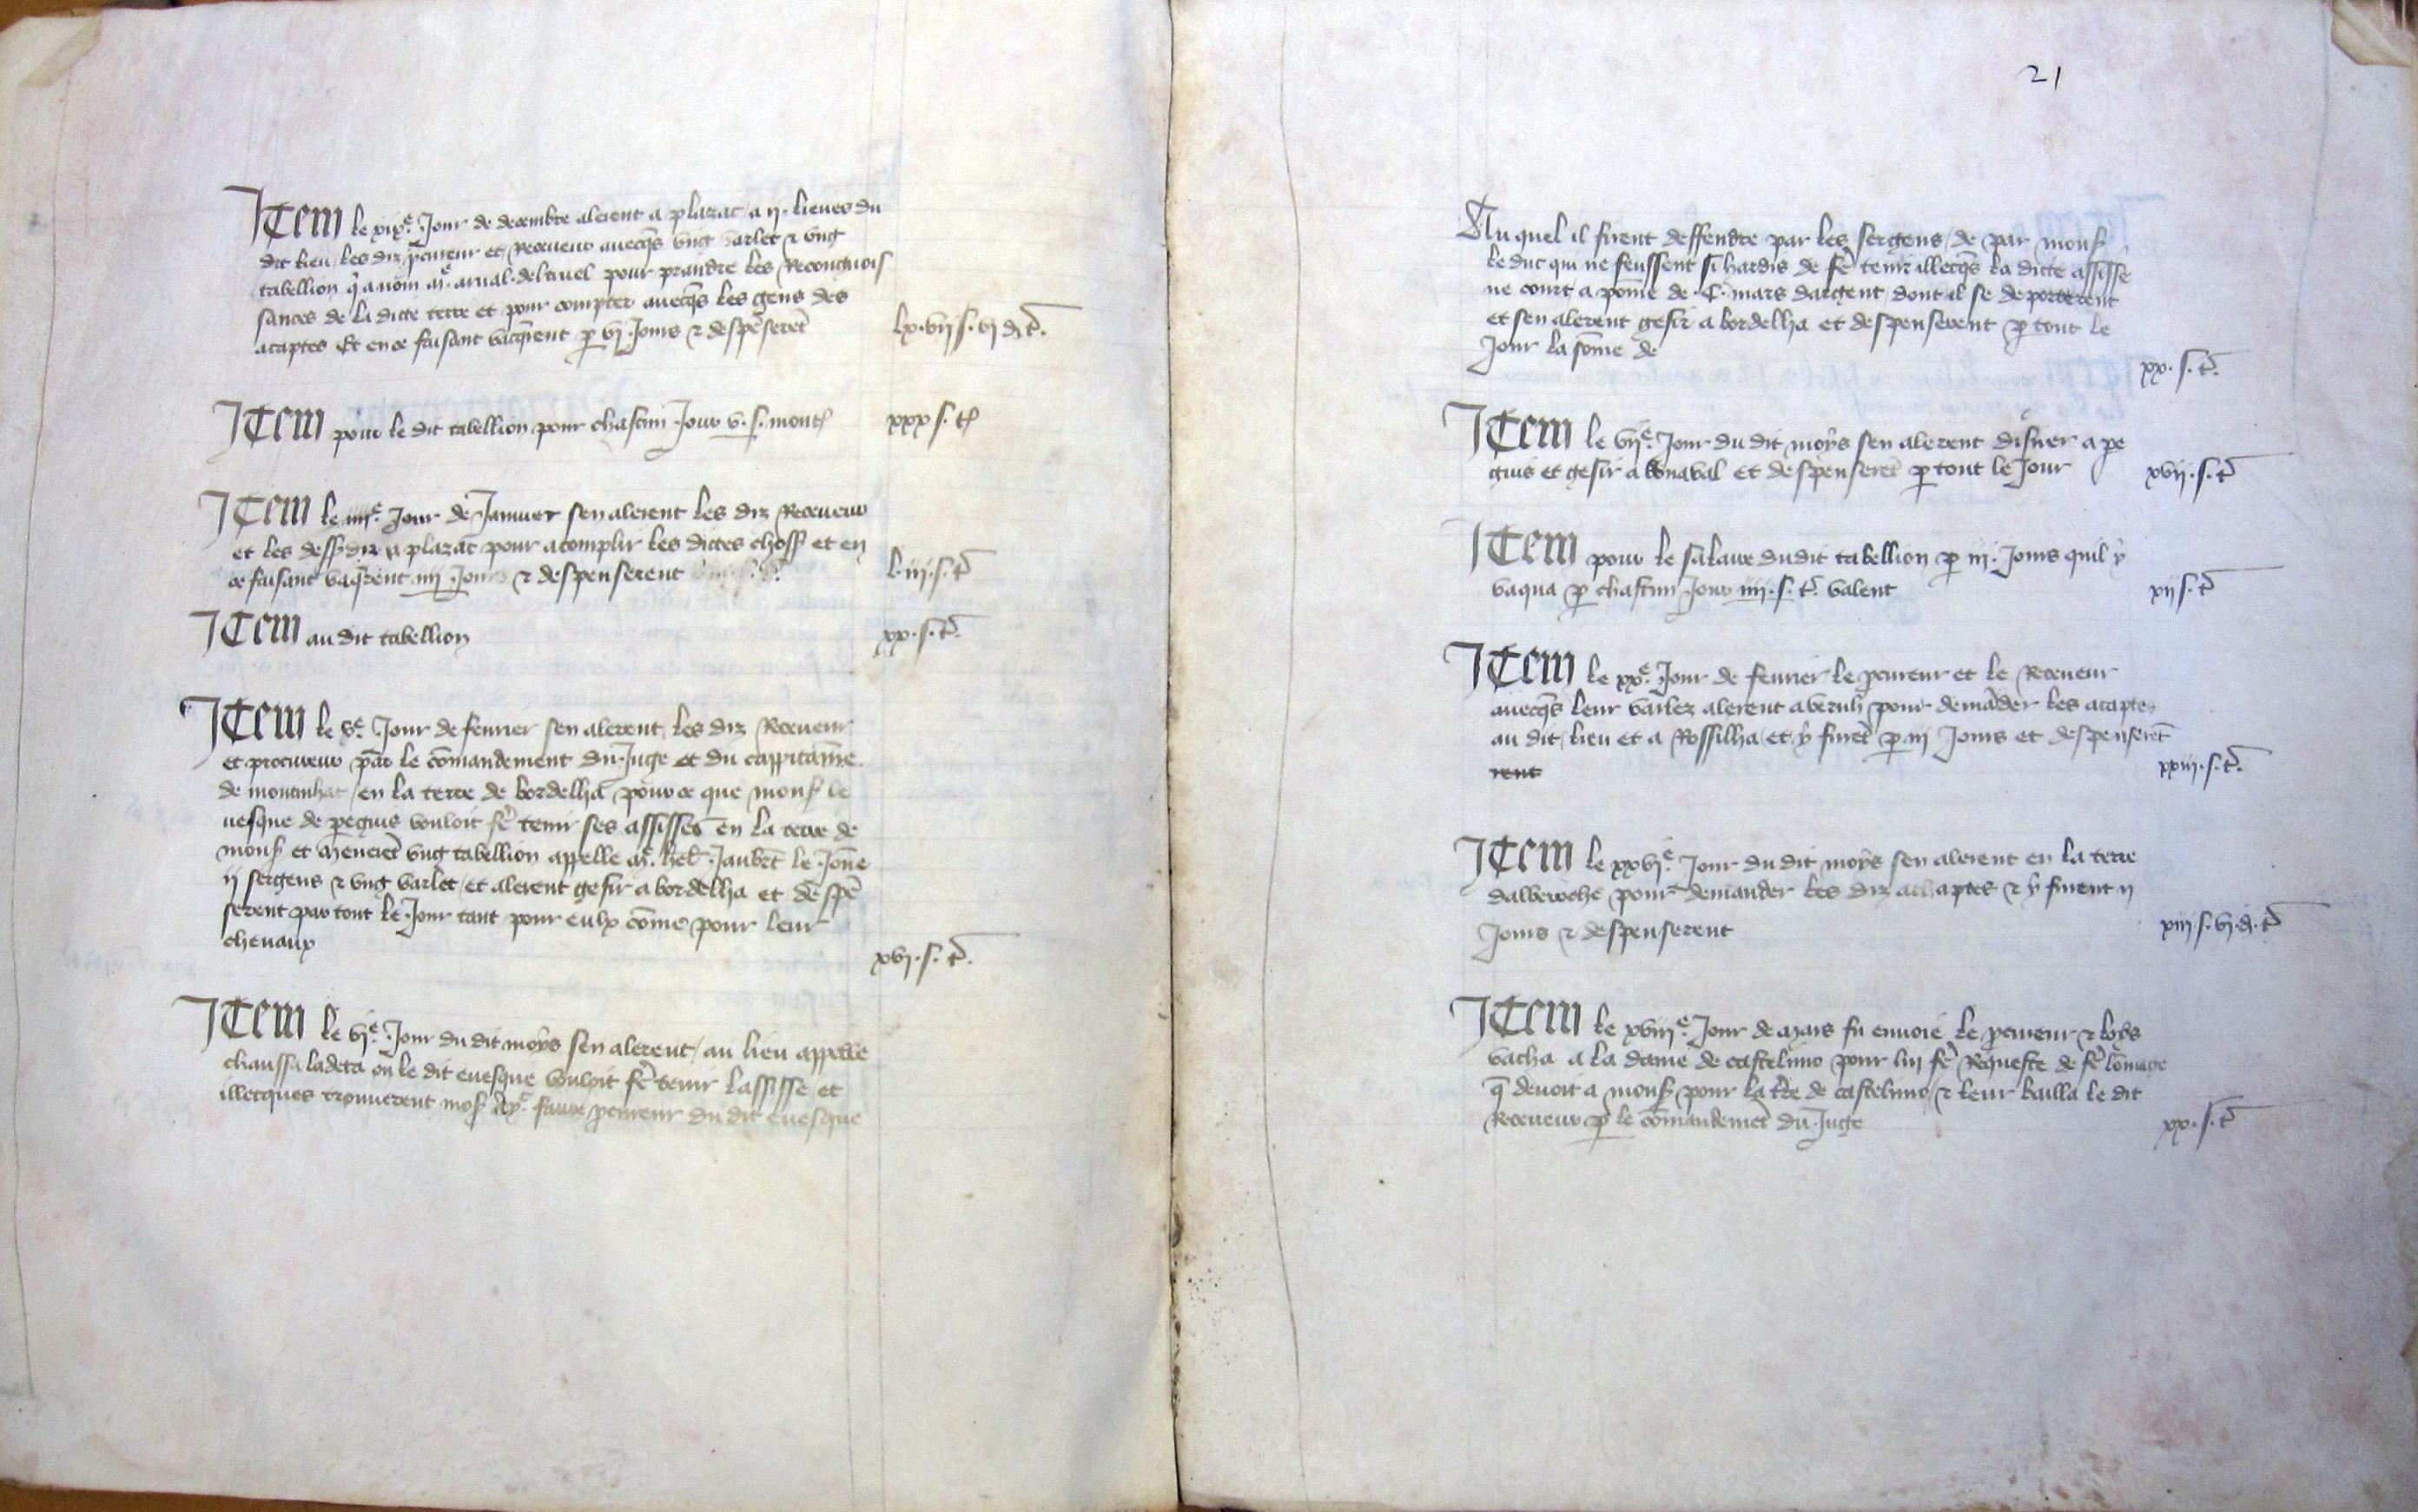 Item le xixe. Jour de decembre alerent a plazac a ii. lieues du
dit lieu les diz pcureur et Receveur avecqs ung varlet & ung
tabellion q a nom me. arnal delbruel pour prandre les Recongnois
sances de la dicte terre et pour compter avecqs les gens des
acaptes Et en ce faisant vacqrent p vi. Jours & despēserēt
lx.vii s. vi d. t.
Item pour le dit tabellion pour chascun Jour v. s. mont
xxx s. t
Item le iiiie. Jour de Janvier sen alerent les diz Receveur
et les dess diz a plazac pour acomplir les dictes choss et en
ce faisant vaqrent iiii Jours & despenserent
l.iii.s.t
Item au dit tabellion
xx.s.t.
Item le ve. Jour de fevrier sen alerent les diz Receveur
et procureur par le cōmandement du Juge et du cappitaine
de montinhac en la terre de bordelha pour ce que mons le
vesque de pegius vouloit fe tenir ses assisses en la terre de
mons et menerēt ung tabellion appelle me. hel. Jaubert le Jone
ii sergens & ung varlet et alerent gesir a bordelha et despē
serent par tout le Jour tant pour eulx cōme pour leur
chevaux
xvi.s.t.
Item le vie. Jour du dit moys sen alerent au lieu appelle
chaussa ladeta ou le dit evesque vouloit fe tenir lassisse et
illecques trouverent mos faure pcureur du dit evesque
21
Au quel il firent deffendre par les sergens de par mons
le duc qui ne feussent si hardis de fe tenir illecqs la dicte assisse
ne court a pome de .C. mars dargent dont il se deporterent
et sen alerent gesir a bordelha et despenserent p tout le
Jour la sōme de
xx.s.t.
Item le viie. Jour du dit moys sen alerent disner a pe
guis et gesir a bonaval et despenserēt p tout le Jour
xvii.s.t
Item pour le salaire du dit tabellion p iii. Jours quil y
vaqua p chascun Jour iiii.s.t. valent
xii s.t
Item le xxe. Jour de fevrier le pcureur et le Receveur
avecqs leur varlez alerent a vernh pour demāder les acaptes
au dit lieu et a Rossilha et y furēt p iii Jours et despenserēt
rent
xxiii.s.t.
Item le xxvie. Jour du dit moys sen alerent en la terre
dalberoche pour demander les diz achaptes & y furent ii
Jours & despenserent
xiii.s.vi.d.t
Item le xviiie. Jour de mars fu envoie le pcureur & loys
vacha a la dame de castelnuo pour luy fe Requeste de fe lomage
q devoit a mons pour la tre de castelnuo & leur bailla le dit
Receveur p le cōmandemēt du Juge
xx.s.t